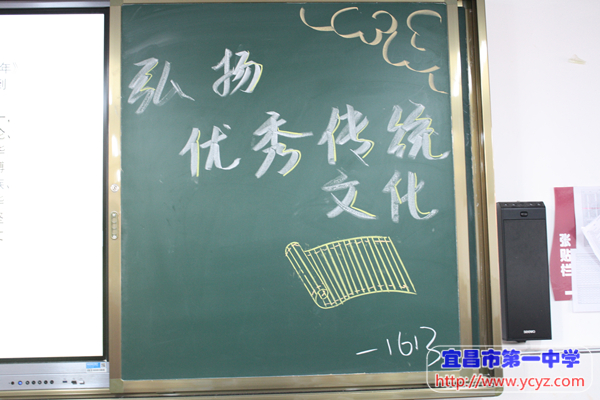 弘扬
优秀传统
文化
一1613
张贴栏
宜昌市第一中学
http://www.ycyz.com